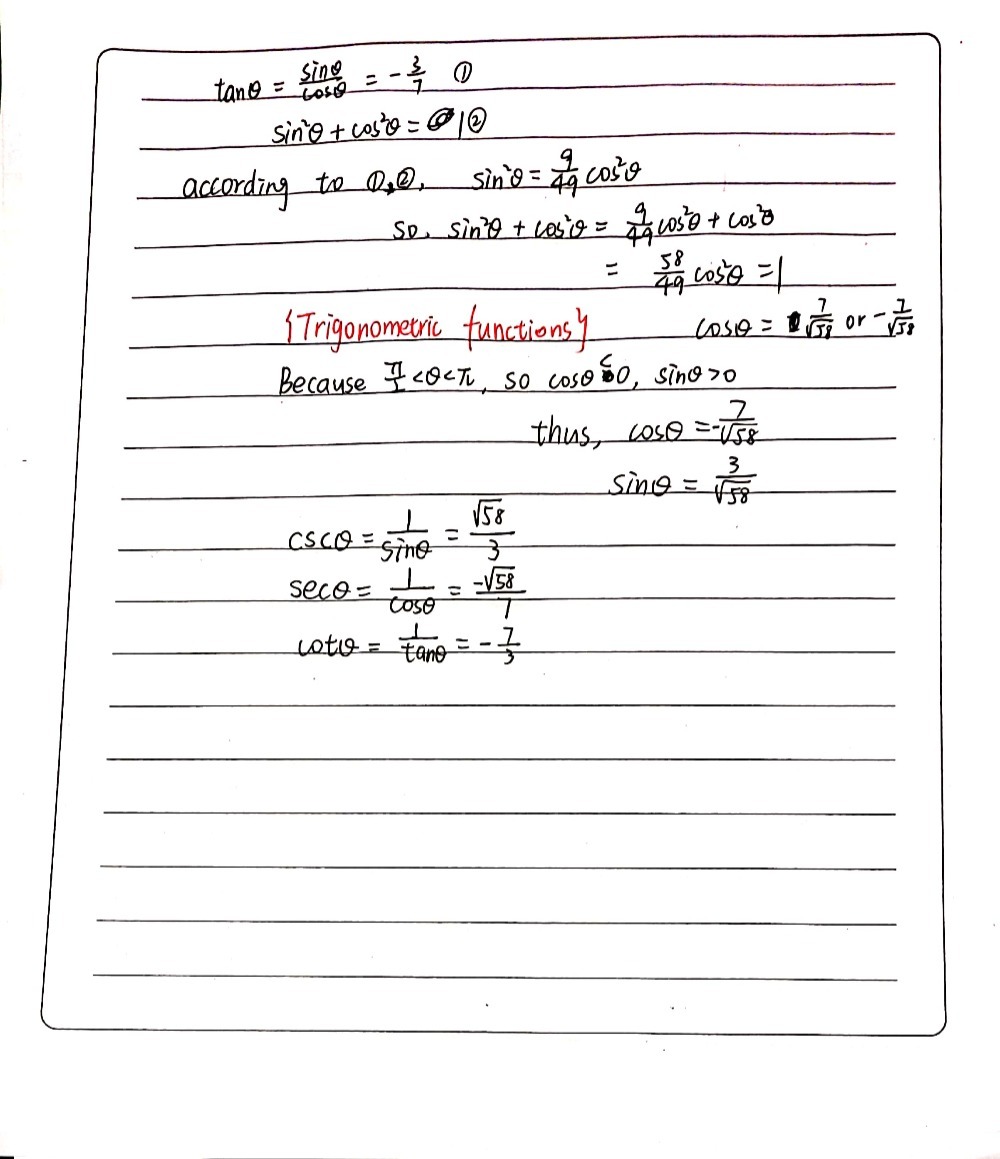 tanθ = sinθ/cosθ = -3/7 ①
sin²θ + cos²θ = 1 ②
according to ①,②, sin²θ = 9/49 cos²θ
so, sin²θ + cos²θ = 9/49 cos²θ + cos²θ
= 58/49 cos²θ = 1
{Trigonometric functions} cosθ = 7/√58 or -7/√58
Because π/2 <θ<π, so cosθ<0, sinθ>0
thus, cosθ = -7/√58
sinθ = 3/√58
cscθ = 1/sinθ = √58/3
secθ = 1/cosθ = -√58/7
cotθ = 1/tanθ = -7/3